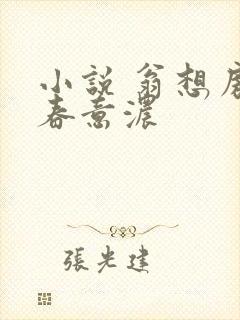 小説 翁想房
春意濃
張光建